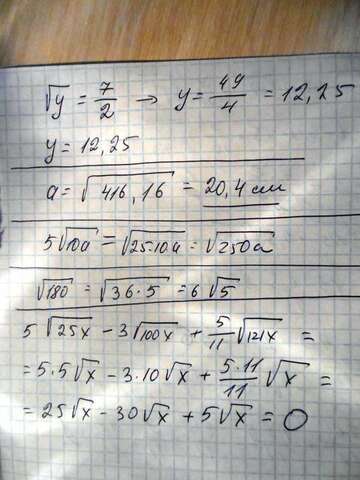 √y = 7/2 → y = 49/4 = 12,25
y = 12,25
a = √416,16 = 20,4 см
5√10a = √25·10a = √250a
√180 = √36·5 = 6√5
5√25x - 3√100x + 5/11√121x =
= 5·5√x - 3·10√x + 5·11/11√x =
= 25√x - 30√x + 5√x = 0